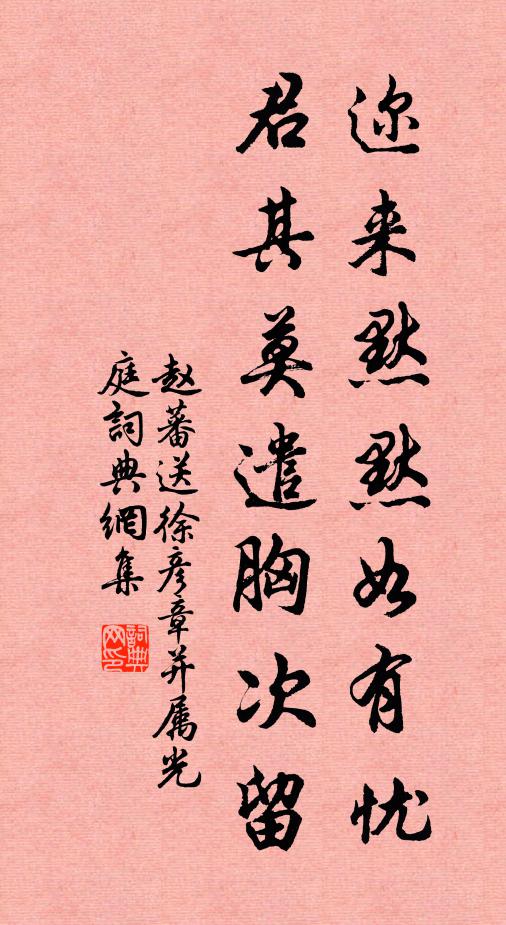 迩来默默如有忧
君其莫遣胸次留
赵蕃送徐彦章并属光
庭詞典網集
詞典网印